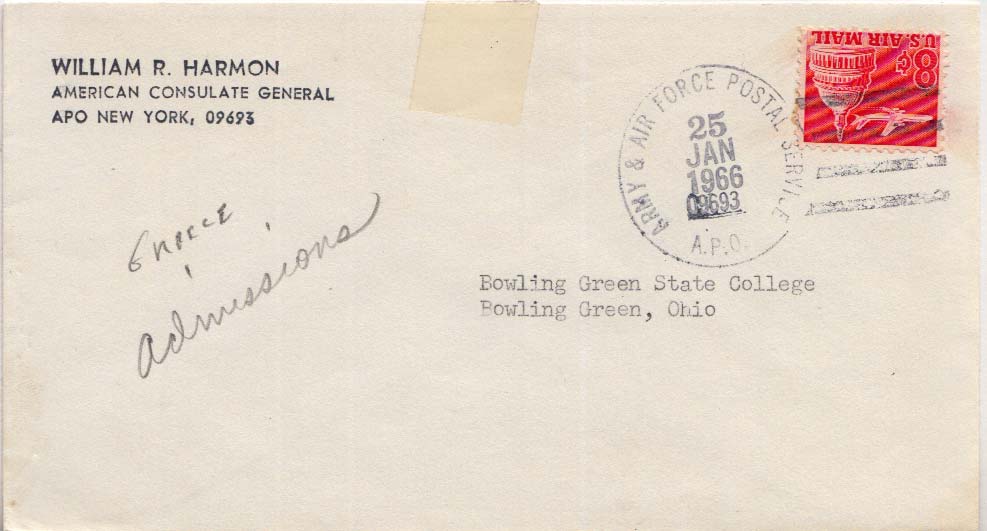 WILLIAM R. HARMON
AMERICAN CONSULATE GENERAL
APO NEW YORK, 09693
U.S. AIR MAIL
8¢
ARMY & AIR FORCE POSTAL SERVICE
25
JAN
1966
09693
A.P.O.
Admissions
Bowling Green State College
Bowling Green, Ohio